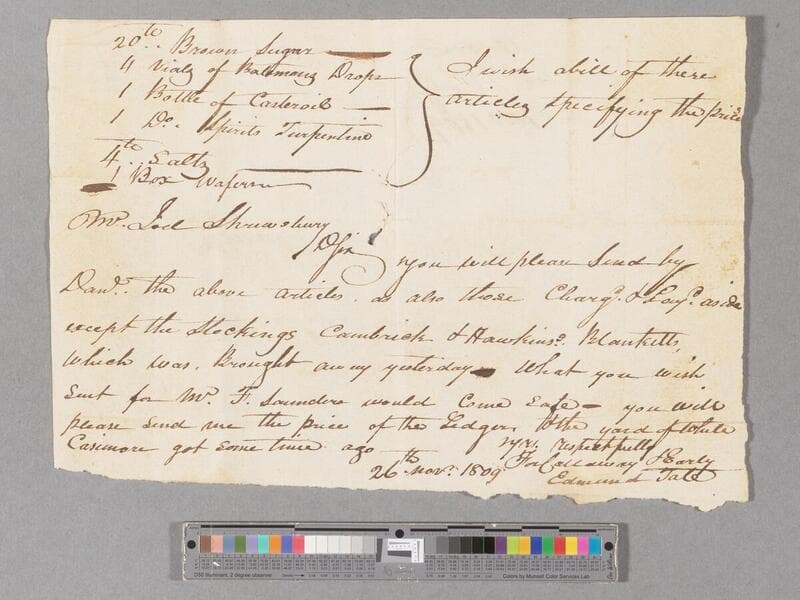 20 lb.. Brown Sugar
4 Vials of Batemans Drops
1 Bottle of Casteroil
1 Do. Spirits Turpentine
4 lb.. Salts
1 Box Wafers
I wish a bill of these
articles specifying the price
Mr. Joel Shrewsbury
D Sir you will please Send by
the above articles. as also those Charg. & Lay. aside
except the Stockings Cambrick & Hawkins. Blanketts,
which was. Brought away yesterday What you wish
Sent for Mr. F. Saunders would Come Safe - you will
please Send me the price of the Ledger, & the yard of white
Casimore got some time ago yrs. respectfully
For Callaway & Early
26th. Novr. 1809 Edmund Tate